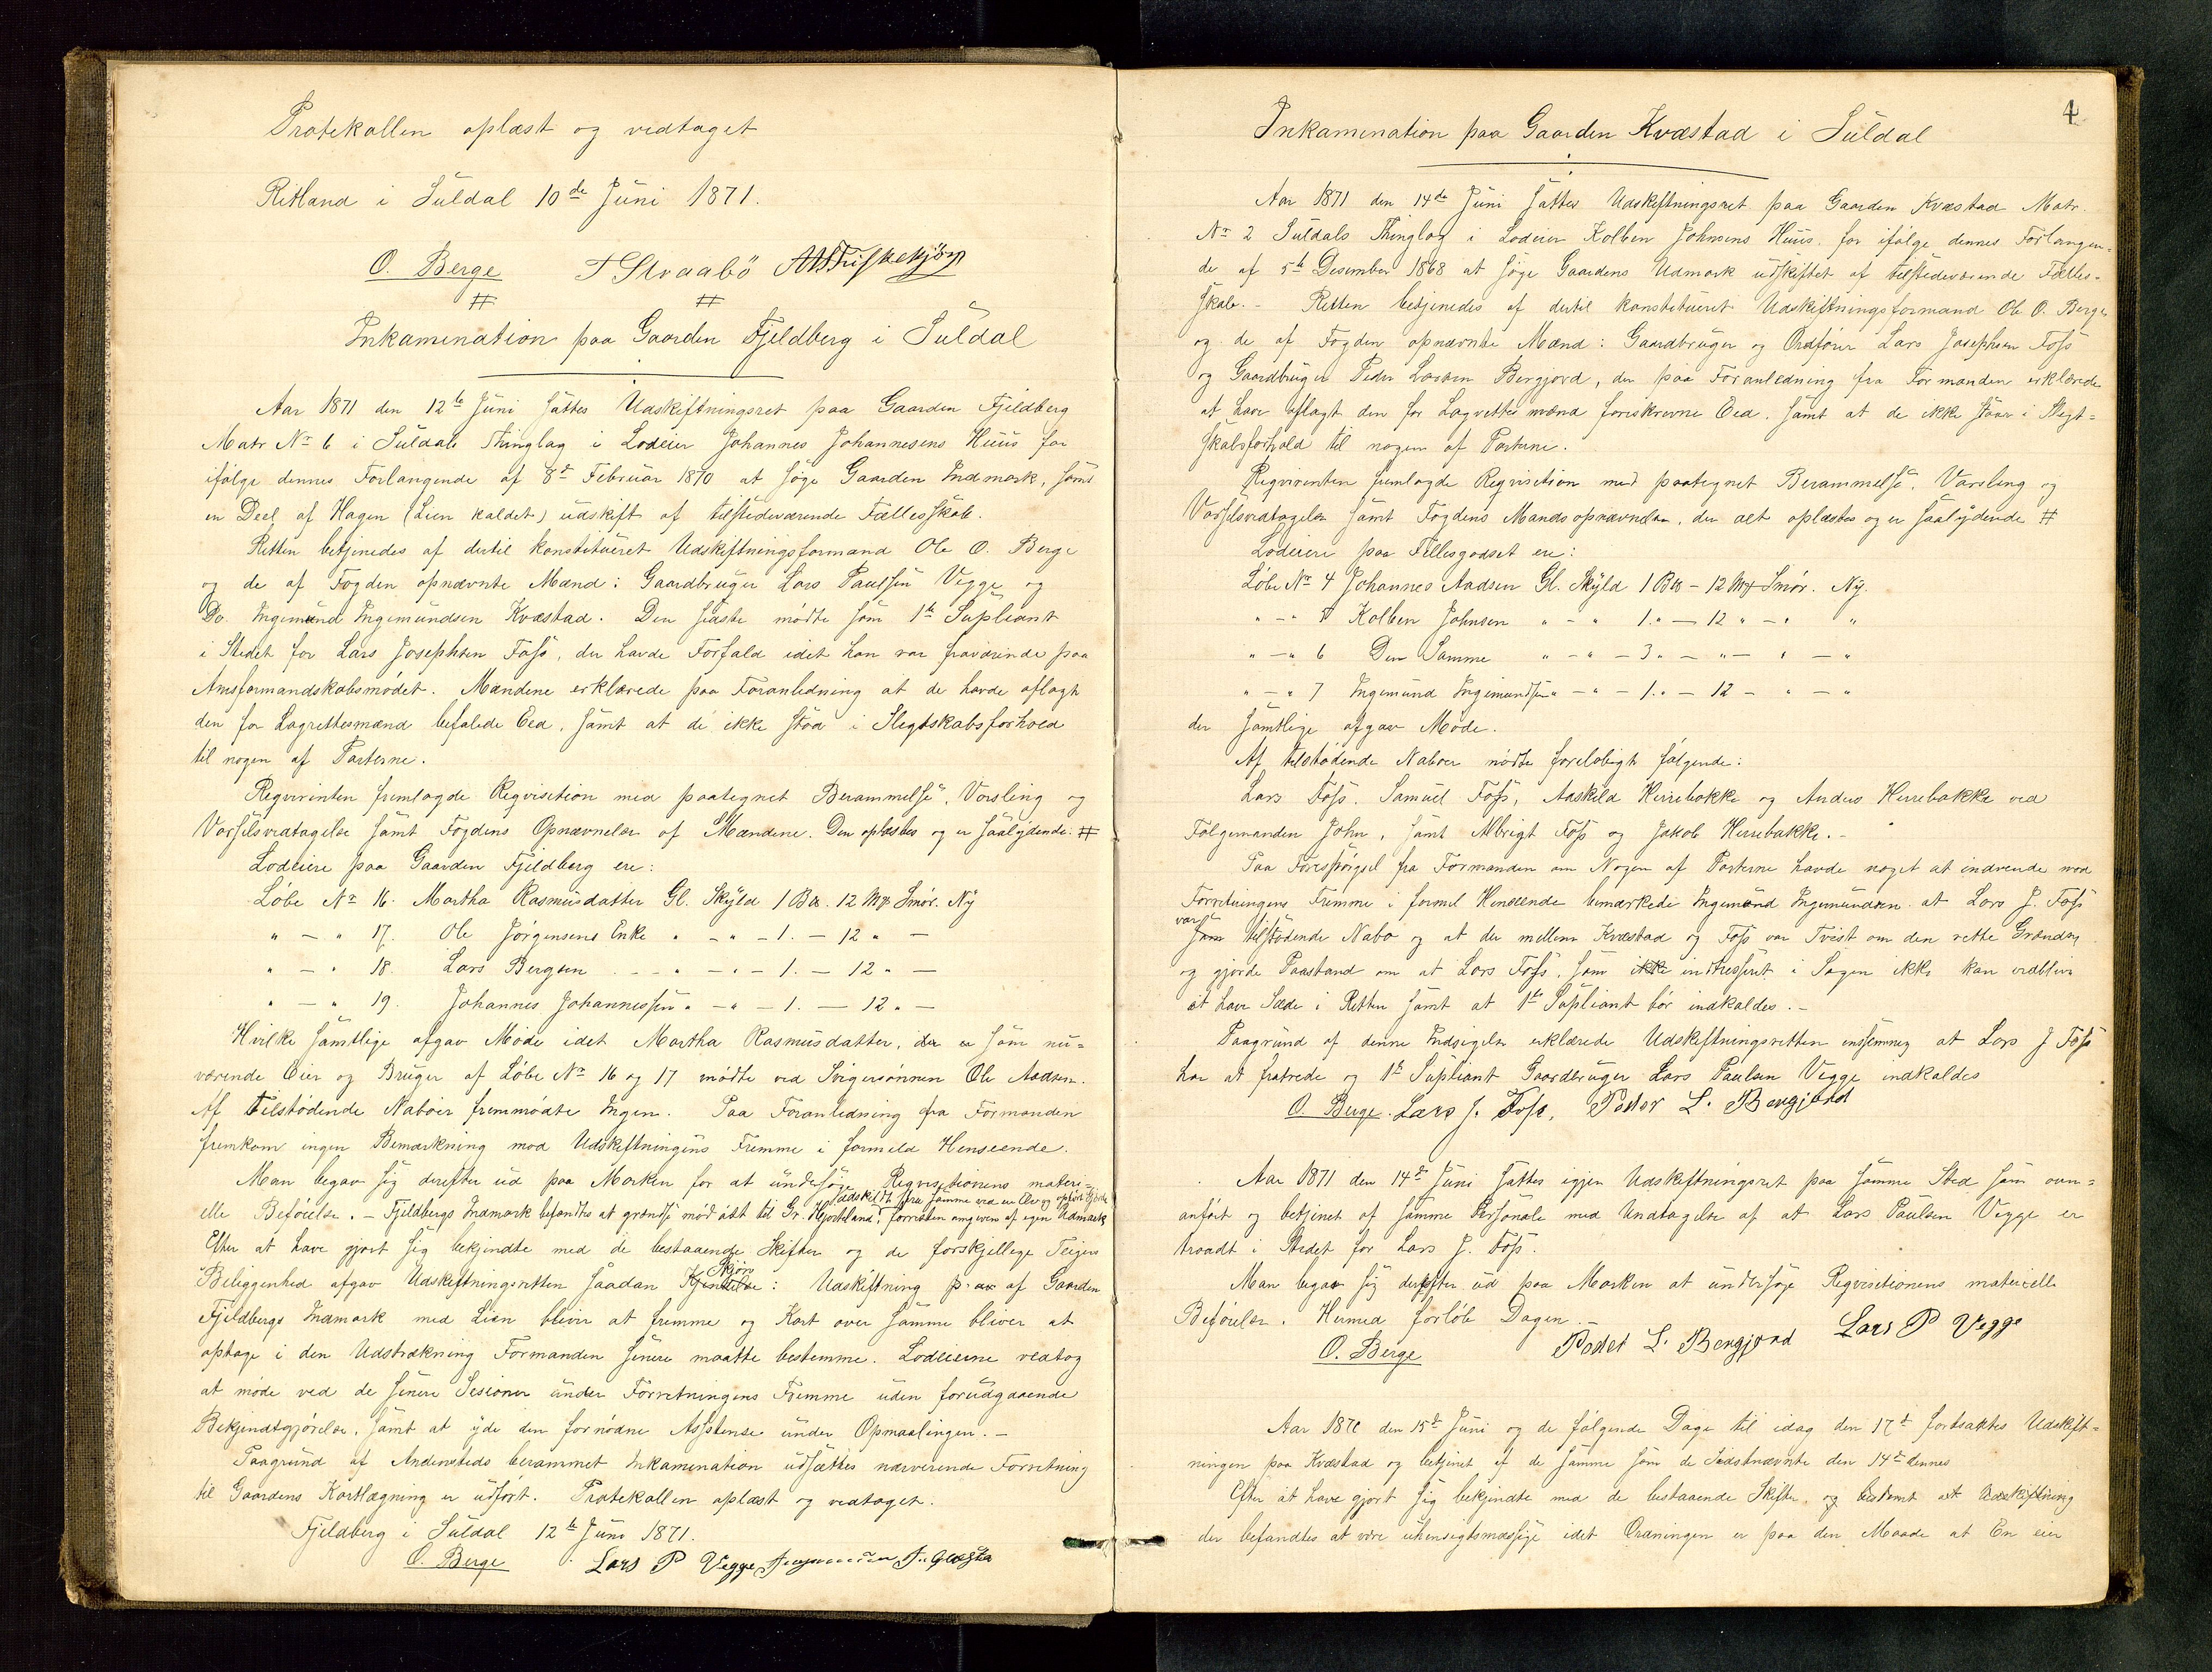 Protokollen oplæst og vedtaget
Ritland i Suldal 10de Juni 1871.
O. Berge T Straabö
# #
Inkamination paa Gaarden Fjeldberg i Suldal
Aar 1871 den 12te Juni sattes Udskiftningsret paa Gaarden Fjeldberg
Matr No 6 i Suldals Thinglag i Lodeier Johannes Johannesens Huus for
ifölge dennes Forlangende af 8de Februar 1870 at söge Gaarden Indmark, samt
en Deel af Hagen (Lien kaldet) udskift af tilstedeværende Fællesskab.
Retten betjenedes af dertil konstitueret Udskiftningsformand Ole O. Berge
og de af Fogden opnævnte Mænd: Gaardbruger Lars Paulsen Vegge og
Do. Ingemund Ingemundsen Kvæstad. Den sidste mödte som 1te Supleant
i Stedet for Lars Josephsen Foss, der havde Forfald idet han var fraværende paa
Amsformandskabsmödet. Mændene erklærede paa Foranledning at de havde aflagt
den for Lagrettesmænd befalede Eed, samt at de ikke stod i Slegtskabsforhold
til nogen af Parterne.
Reqvirenten fremlagde Reqvisition med paategnet Berammelse, Varsling og
Varselsvedtagelse samt Fogdens Opnævnelse af Mændene. Den oplæstes og er saalydende: #
Lodeiere paa Gaarden Fjeldberg ere:
Löbe No 16. Martha Rasmusdatter Gl. Skyld 1 Bd. 12 Mk Smör. Ny
" — " 17. Ole Jörgensens Enke " - " - 1. - 12 " —
" — " 18. Lars Bergsen " - " - 1. - 12 " —
" — " 19. Johannes Johannessen " - " - 1. — 12 " —
Hvilke samtlige afgav Möde idet Martha Rasmusdatter, der er som nu=
værende Eier og Bruger af Löbe No 16 og 17 mödte ved Svigersönnen Ole Aadsen.
Af Tilstödende Naboer fremmödte Ingen. Paa Foranledning fra Formanden
fremkom ingen Bemærkning mod Udskiftningens Fremme i formeld Henseende.
Man begav sig derefter ud paa Marken for at undersöge Reqvisitionens materi=
adskildt fra samme ved en Elv og opfört Gjerde
elle Beföielse. — Fjeldbergs Indmark befandtes at grændse mod öst til Gr. Hjorteland, forresten omgiven af egen Udmark
Efter at have gjort sig bekjendte med de bestaaende Skifter og de forskjellige Teigers
Skjön
Beliggenhed afgav Udskiftningsretten saadan Kjendelse: Udskiftning af Gaarden
Fjeldbergs Indmark med Lien bliver at fremme og Kart over samme bliver at
optage i den Udstrækning Formanden senere maatte bestemme. Lodeierne vedtog
at möde ved de senere Sesioner under Forretningens Fremme uden forudgaaende
Bekjendtgjörelse, samt at yde den fornödne Assistense under Opmaalingen. —
Paagrund af Andensteds berammet Inkamination udsættes nærværende Forretning
til Gaardens Kortlægning er udfört. Protokollen oplæst og vedtaget.
Fjeldberg i Suldal 12te Juni 1871.
O. Berge Lars P Vegge
4
Inkamination paa Gaarden Kvæstad i Suldal
Aar 1871 den 14de Juni sattes Udskiftningsret paa Gaarden Kvæstad Matr.
No 2 Suldals Thinglag i Lodeier Kolben Johnsens Huus, for ifölge dennes Forlangen=
de af 5te Desember 1868 at söge Gaardens Udmark udskiftet af tilstedeværende Fælles=
skab. - Retten betjenedes af dertil konstitueret Udskiftningsformand Ole O. Berge
og de af Fogden opnævnte Mænd: Gaardbruger og Ordförer Lars Josephsen Foss
og Gaardbruger Peder Larsen Bergjord, der paa Foranledning fra Formanden erklærede
at have aflagt den for Lagrettesmænd foreskrevne Eed, samt at de ikke staar i Slegt=
skabsforhold til nogen af Parterne.
Reqvirenten fremlagde Reqvisition med paategnet Berammelse, Varsling og
Varselsvedtagelse samt Fogdens Mandsopnævnelse, der alt oplæstes og er saalydende #
Lodeiere paa Fellesgodset ere:
Löbe No 4 Johannes Aadsen Gl. Skyld 1 Bd - 12 Mk Smör. Ny.
" — " 5 Kolben Johnsen " - " 1. " — 12 " — " "
" — " 6 Den Samme " - " — 3 " — " — " — "
" — " 7 Ingemund Ingemundsen " — " — 1. " — 12 — " — "
der samtlige afgav Möde.
Af tilstödende Naboer mödte foreløbigt fölgende:
Lars Foss, Samuel Foss, Aaskild Herrebakke og Anders Herrebakke ved
Fölgemanden John, samt Albrigt Foss og Jakob Herrebakke. —
Paa Forespörgsel fra Formanden om Nogen af Parterne havde noget at indvende mod
Forretningens Fremme i formel Henseende bemærkede Ingemund Ingemundsen at Lars J. Foss
var
som tilstödende Nabo og at der mellem Kvæstad og Foss var Tvist om den rette Grændse
og gjorde Paastand om at Lars Foss, som ikke intresseret i Sagen ikke kan vedblive
at have Sæde i Retten samt at 1te Supleant bör indkaldes. —
Paagrund af denne Indsigelse erklærede Udskiftningsretten enstemmig at Lars J Foss
har at fratrede og 1te Supleant Gaardbruger Lars Paulsen Vegge indkaldes
O. Berge. Lars J. Foss, Peder L. Bergjord
Aar 1871 den 14de Juni sattes igjen Udskiftningsret paa samme Sted som oven=
anfört og betjenet af samme Personale med Undtagelse af at Lars Paulsen Vegge er
traadt i Stedet for Lars J. Foss.
Man begav sig derefter ud paa Marken at undersöge Reqvisitionens materielle
Beföielse. Hermed forlöb Dagen. —
O. Berge Peder L. Bergjord Lars P Vegge
Aar 1871 den 15de Juni og de fölgende Dage til idag den 17de fortsattes Udskift=
ningen paa Kvæstad og betjenet af de samme som de Sidstnævnte den 14de dennes
Efter at have gjort sig bekjendte med de bestaaende Skifter, og bestemt at Udskiftning
der befandtes at være uhensigtsmæssige idet Ordningen er paa den Maade at En eier